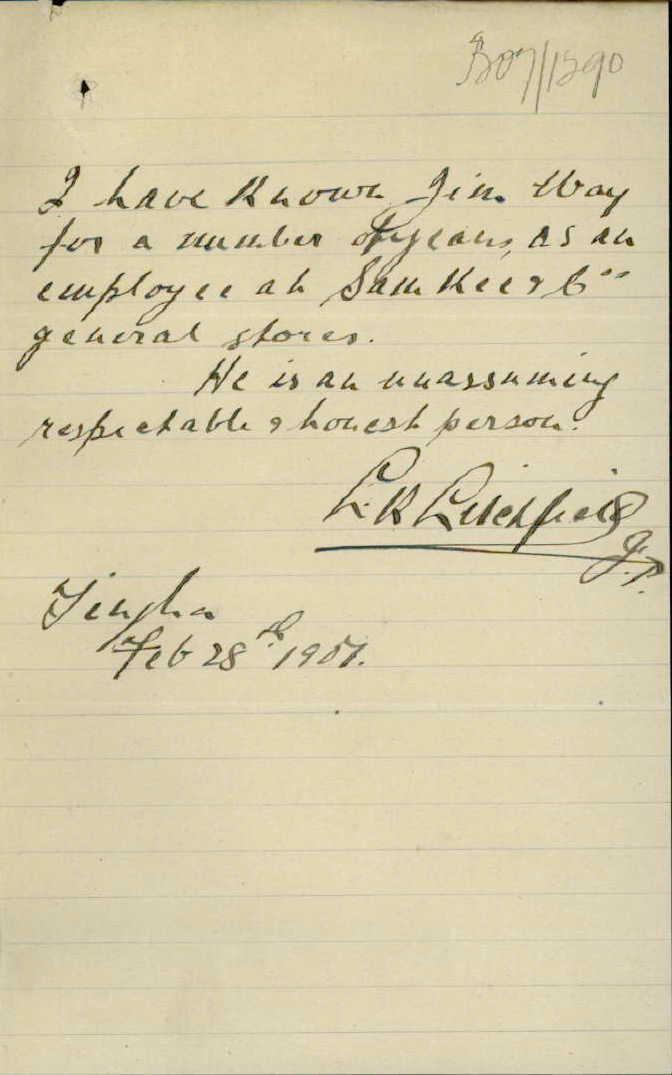 B07/1290
I have known Jim Way
for a number of years, as an
employee at Sam Kee & Co
general stores.
He is an unassuming
respectable & honest person.
J.P.
Tingha
Feb 28th 1907.